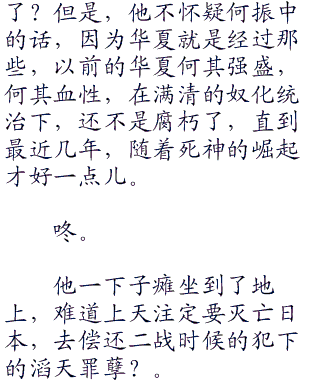 了？但是，他不怀疑何振中
的话，因为华夏就是经过那
些，以前的华夏何其强盛，
何其血性，在满清的奴化统
治下，还不是腐朽了，直到
最近几年，随着死神的崛起
才好一点儿。
咚。
他一下子瘫坐到了地
上，难道上天注定要灭亡日
本，去偿还二战时候的犯下
的滔天罪孽？。